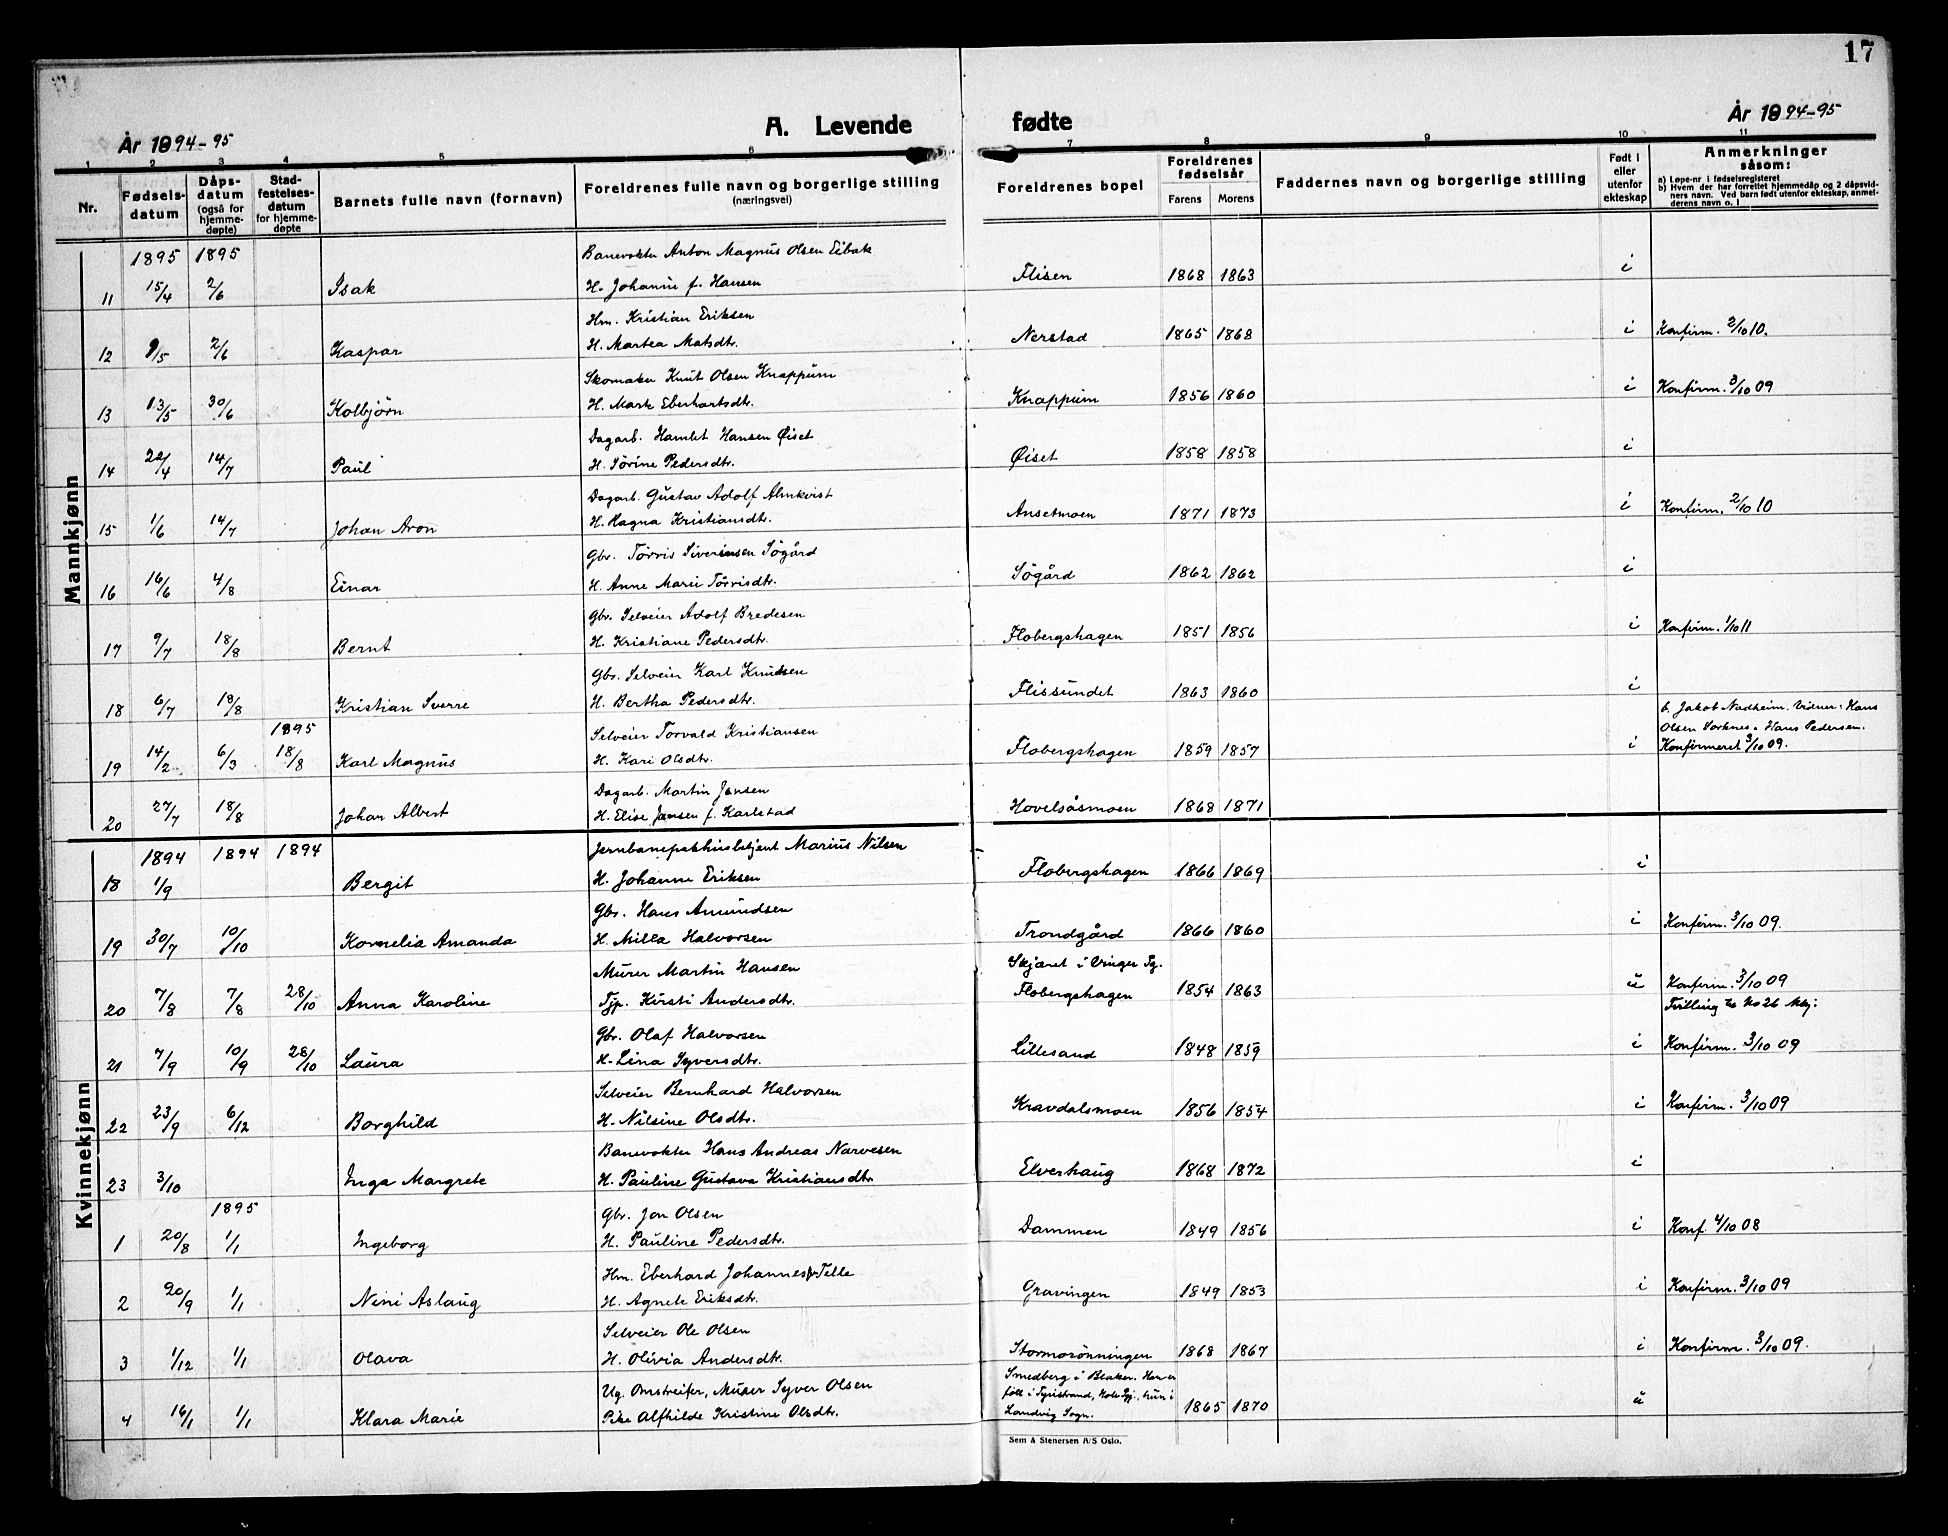 17
År 1894-95
A. Levende fødte
År 1894-95
1 2 3 4 5 6 7 8 9 10 11
Nr. Fødselsdatum Dåpsdatum (også for hjemmedøpte) Stadfestelsesdatum for hjemmedøpte Barnets fulle navn (fornavn) Foreldrenes fulle navn og borgerlige stilling (næringsvei) Foreldrenes bopel Foreldrenes fødselsår Farens Morens Faddernes navn og borgerlige stilling Født i eller utenfor ekteskap Anmerkninger såsom: a) Løpe-nr i fødselsregisteret b) Hvem der har forrettet hjemmedåp og 2 dåpsvidners navn. Ved barn født utenfor ekteskap, anmelderens navn o. l
Mannkjønn
1895 1895 Banevokter Anton Magnus Olsen Eibak
11 15/4 2/6 Isak H. Johanne f. Hansen Flisen 1868 1863 i
Hm. Kristian Eriksen
12 9/5 2/6 Kaspar H. Martea Matsdtr. Nerstad 1865 1868 i Konfirm. 2/10 10.
Skomaker Knut Olsen Knappum
13 13/5 30/6 Kolbjörn H. Mark Eberhartsdtr. Knappum 1856 1860 i Konfirm. 3/10 09
Dagarb. Hamlet Hansen Øiset
14 22/4 14/7 Paul H. Sörine Pedersdtr. Øiset 1858 1858 i
Dagarb. Gustav Adolf Almkvist
15 1/6 14/7 Johan Aron H. Magna Kristiansdtr. Ansetmoen 1871 1873 i Konfirm. 2/10 10
Gbr. Törris Siverinsen Sögård
16 16/6 4/8 Einar H. Anne Marie Törrisdtr. Sögård 1862 1862 i
Gbr. Selveier Adolf Bredesen
17 9/7 18/8 Bernt H. Kristiane Pedersdtr. Flobergshagen 1851 1856 i Konfirm. 1/10 11
Gbr. Selveier Karl Knudsen
18 6/7 18/8 Kristian Sverre H. Bertha Pedersdtr. Flissundet 1863 1860 i
1895 Selveier Torvald Kristiansen b. Jakob Nadheim. Vidner: Hans Olsen Sorknes o. Hans Pedersen.
19 14/2 6/3 18/8 Karl Magnus H. Kari Olsdtr. Flobergshagen 1859 1857 i Konfirmeret 3/10 09.
Dagarb. Martin Jansen
20 27/7 18/8 Johan Albert H. Elise Jansen f. Karlstad Hovelsåsmoen 1868 1871
Kvinnekjønn
1894 1894 1894 Jernbanepakhusbetjent Marius Nilsen
18 1/9 Bergit H. Johanne Eriksen Flobergshagen 1866 1869 i
Gbr. Hans Amundsen
19 30/7 10/10 Kornelia Amanda H. Milla Halvorsen Trondgård 1866 1860 i Konfirm. 3/10 09.
Murer Martin Hansen Skjæret i Vinger Sg.
20 7/8 7/8 28/10 Anna Karoline Tjp. Kirsti Andersdtr. Flobergshagen 1854 1863 u Konfirm. 3/10 09
Tvilling til No 26 Mkj:
Gbr. Olaf Halvorsen
21 7/9 10/9 28/10 Laura H. Lina Syversdtr. Lillesand 1848 1859 i Konfirm. 3/10 09
Selveier Bernhard Halvorsen
22 23/9 6/12 Borghild H. Nilsine Olsdtr. Kravdalsmoen 1856 1854 i Konfirm. 3/10 09
Banevokter Hans Andreas Narvesen
23 3/10 Inga Margrete H. Pauline Gustava Kristiansdtr Elverhaug 1868 1872 i
1895 Gbr. Jon Olsen
1 20/8 1/1 Ingeborg H. Pauline Pedersdtr. Dammen 1849 1856 i Konf. 4/10 08
Hm. Eberhard Johannes Telle
2 20/9 1/1 Nini Aslaug H. Agnete Eriksdtr. Gravingen 1849 1853 i Konfirm. 3/10 09
Selveier Ole Olsen
3 1/12 1/1 Olava H. Olivia Andersdtr. Stormorönningen 1868 1867 i Konfirm. 3/10 09.
Ug. Omstreifer, Murer Syver Olsen Smedberg i Blaker. Han er født i Tyristrand, Hole Pgj., hun i
4 16/1 1/1 Klara Marie Pike Alfhilde Kristine Olsdtr. Landvig Sogn. 1865 1870 u
Sem & Stenersen A/S Oslo.